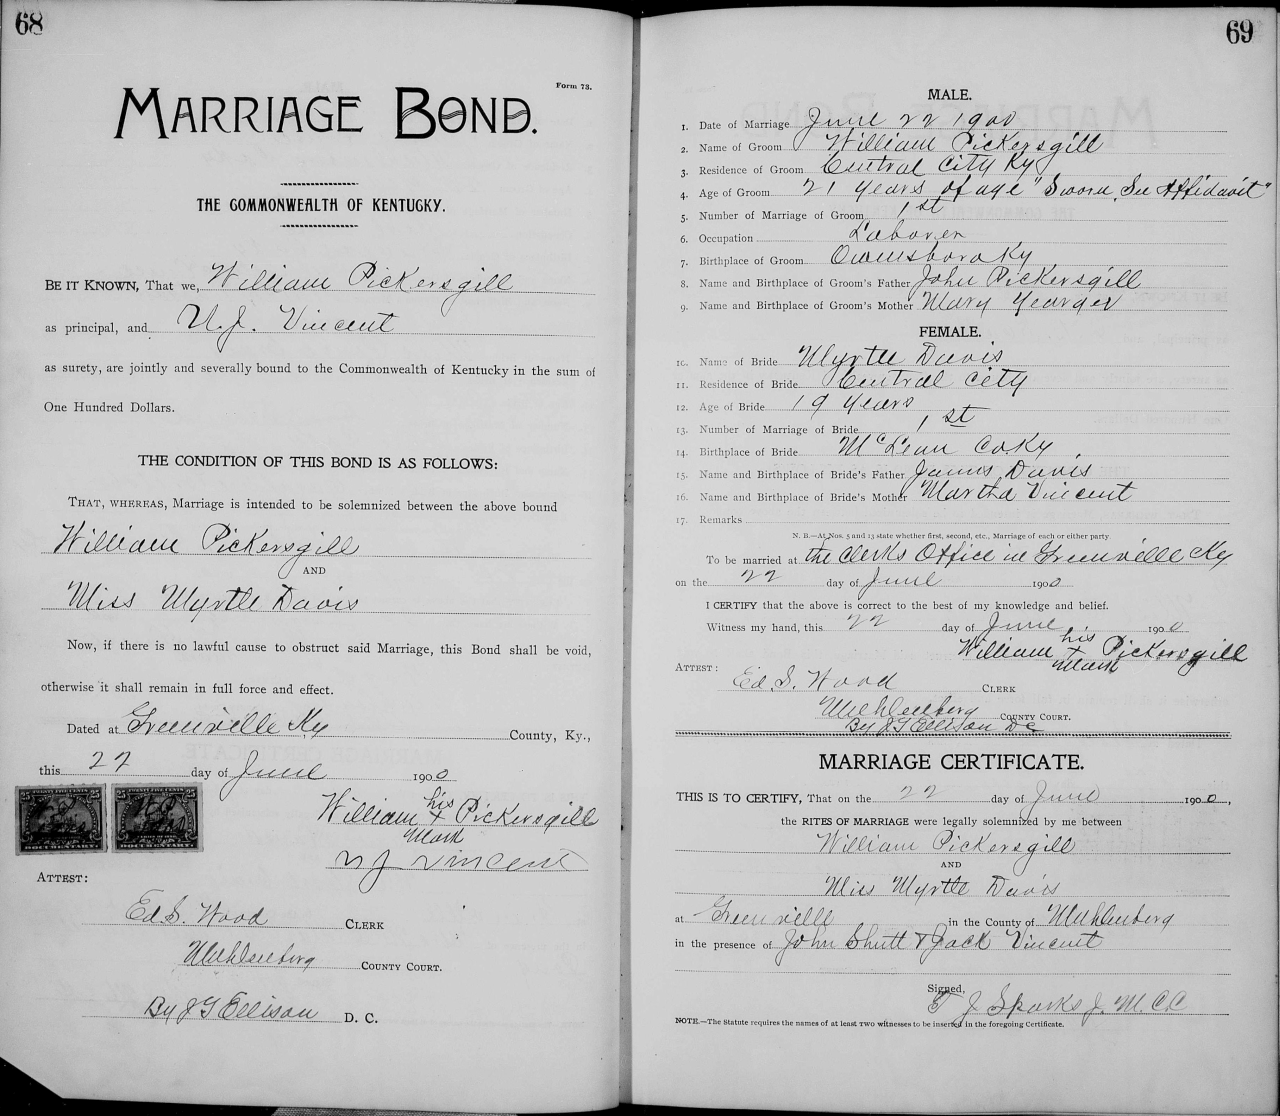 68
Form 73.
MARRIAGE BOND.
THE COMMONWEALTH OF KENTUCKY.
BE IT KNOWN, That we, William Pickersgill
as principal, and N. J. Vincent
as surety, are jointly and severally bound to the Commonwealth of Kentucky in the sum of
One Hundred Dollars.
THE CONDITION OF THIS BOND IS AS FOLLOWS:
THAT, WHEREAS, Marriage is intended to be solemnized between the above bound
William Pickersgill
AND
Miss Myrtle Davis
Now, if there is no lawful cause to obstruct said Marriage, this Bond shall be void,
otherwise it shall remain in full force and effect.
Dated at Greenville Ky County, Ky.,
this 22 day of June 1900
William his x mark Pickersgill
N J Vincent
25 TWENTY FIVE CENTS 25
DOCUMENTARY.
25 TWENTY FIVE CENTS 25
DOCUMENTARY.
ATTEST:
Ed. S. Wood CLERK
Muhlenberg COUNTY COURT.
By J G Ellison D. C.
69
MALE.
1. Date of Marriage June 22 1900
2. Name of Groom William Pickersgill
3. Residence of Groom Central City Ky
4. Age of Groom 21 years of age "Sworn, See Affidavit"
5. Number of Marriage of Groom 1st
6. Occupation Laborer
7. Birthplace of Groom Owensboro Ky
8. Name and Birthplace of Groom's Father John Pickersgill
9. Name and Birthplace of Groom's Mother Mary Yearger
FEMALE.
10. Name of Bride Myrtle Davis
11. Residence of Bride Central City
12. Age of Bride 19 years
13. Number of Marriage of Bride 1st
14. Birthplace of Bride McLean Co Ky
15. Name and Birthplace of Bride's Father James Davis
16. Name and Birthplace of Bride's Mother Martha Vincent
17. Remarks
N. B.—At Nos. 5 and 13 state whether first, second, etc., Marriage of each or either party
To be married at the Clerks Office in Greenville Ky
on the 22 day of June 1900
I CERTIFY that the above is correct to the best of my knowledge and belief.
Witness my hand, this 22 day of June 1900
William his x mark Pickersgill
ATTEST:
Ed. S. Wood CLERK
Muhlenberg COUNTY COURT.
By J G Ellison DC
MARRIAGE CERTIFICATE.
THIS IS TO CERTIFY, That on the 22 day of June 1900,
the RITES OF MARRIAGE were legally solemnized by me between
William Pickersgill
AND
Miss Myrtle Davis
at Greenville in the County of Muhlenberg
in the presence of John Shutt & Jack Vincent
Signed,
T J Sparks J. M. C. C.
NOTE.—The Statute requires the names of at least TWO witnesses to be inserted in the foregoing Certificate.